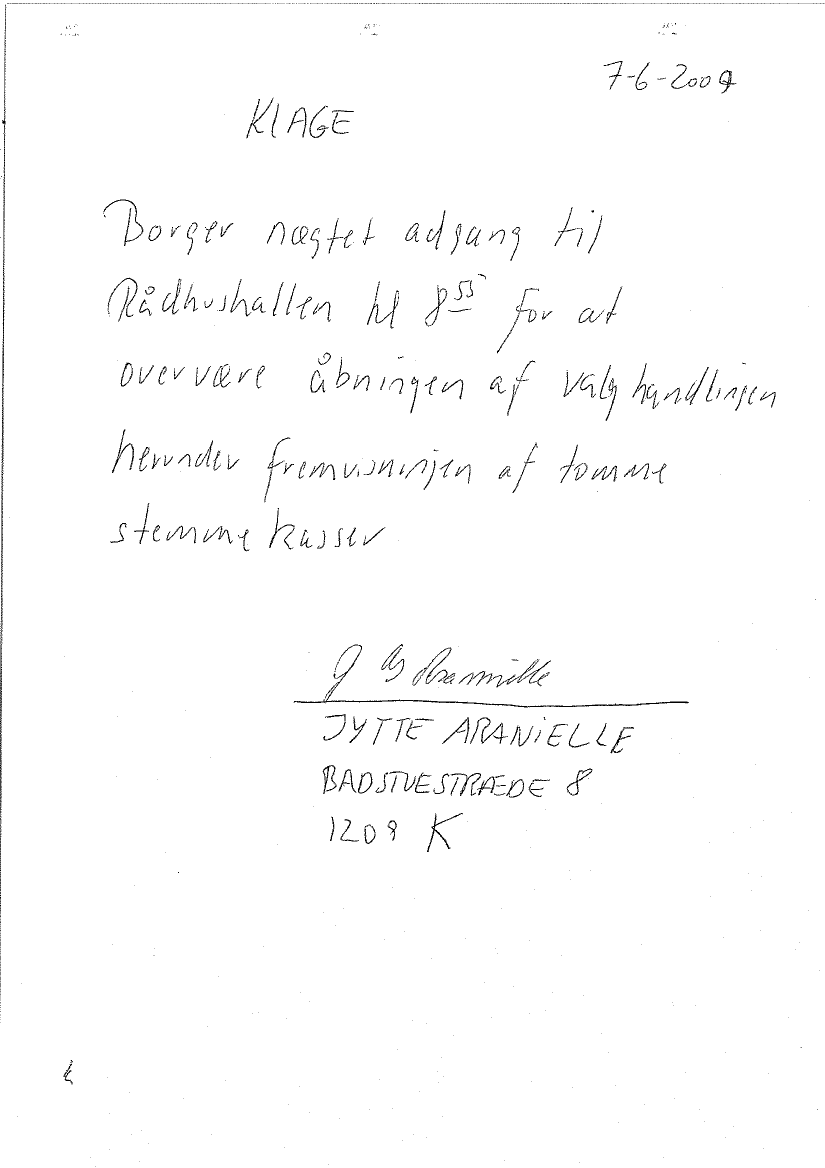 7-6-2009
KLAGE
Borger nægtet adgang til
Rådhushallen kl 8 55 for at
overvære åbningen af valghandlingen
herunder fremvisningen af tomme
stemmekasser
JYTTE ARANiELLE
BADSTUESTRÆDE 8
1209 K